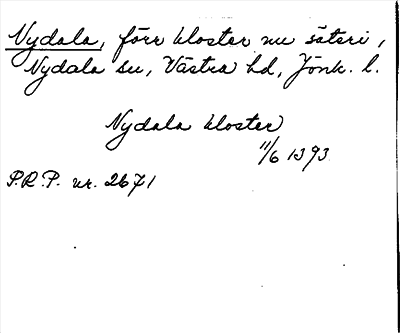 Nydala, förr kloster nu säteri,
Nydala sn, Västra hd, Jönk. l.
Nydala kloster
11/6 1393
P.R.P. nr. 2671